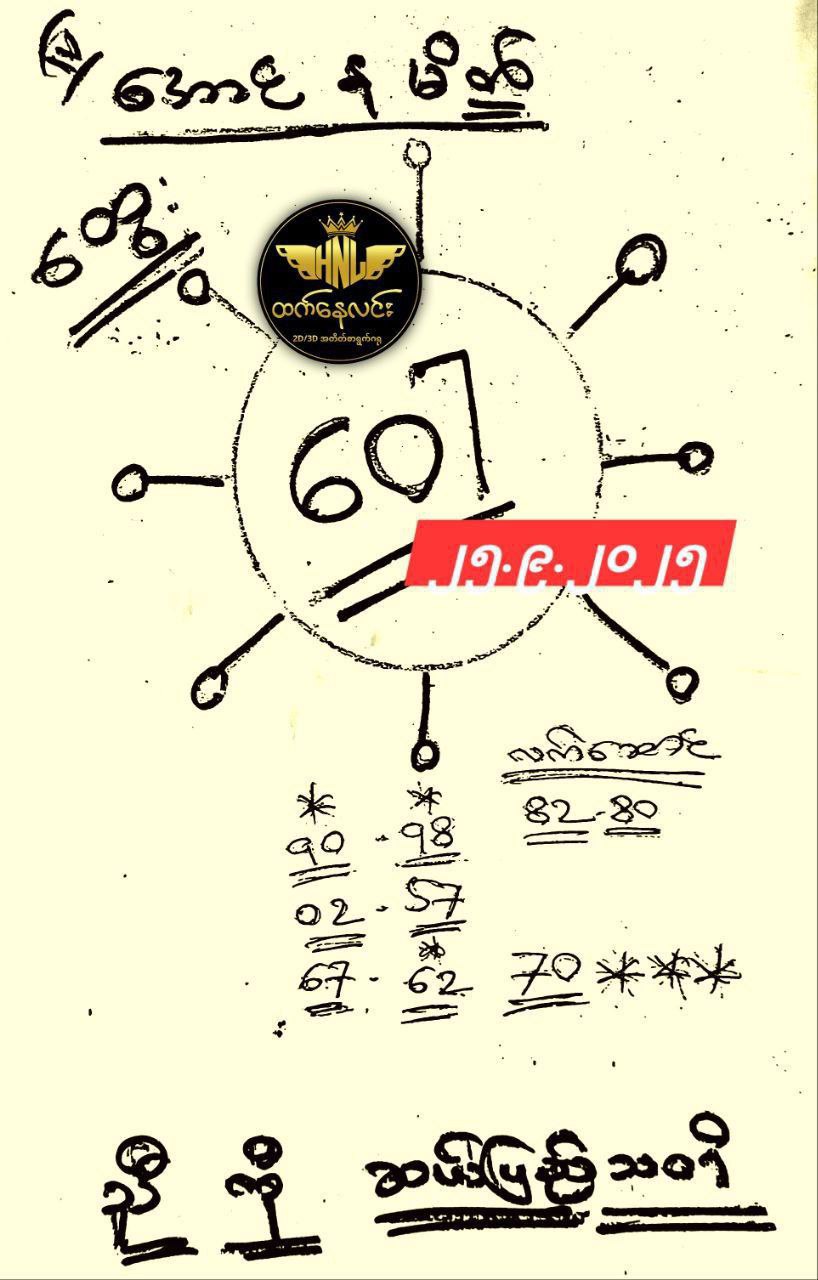 အောင် န မိတ်
၆ တွဲ:
HNL
ထက်နေလင်း
2D/3D အတိတ်စာရွက်ဂရု
607
၂၅.၉.၂၀၂၅
လက်ဆောင်
82-80
90 - 98
02 - 57
67 - 62 70 ***
ညီ ကို ဆယ်ပြည် သဝရီ